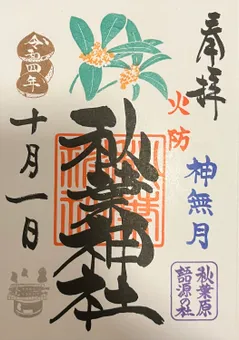 奉拝
火防
神無月
秋葉原
語源の社
秋葉神社
令和四年
十月一日